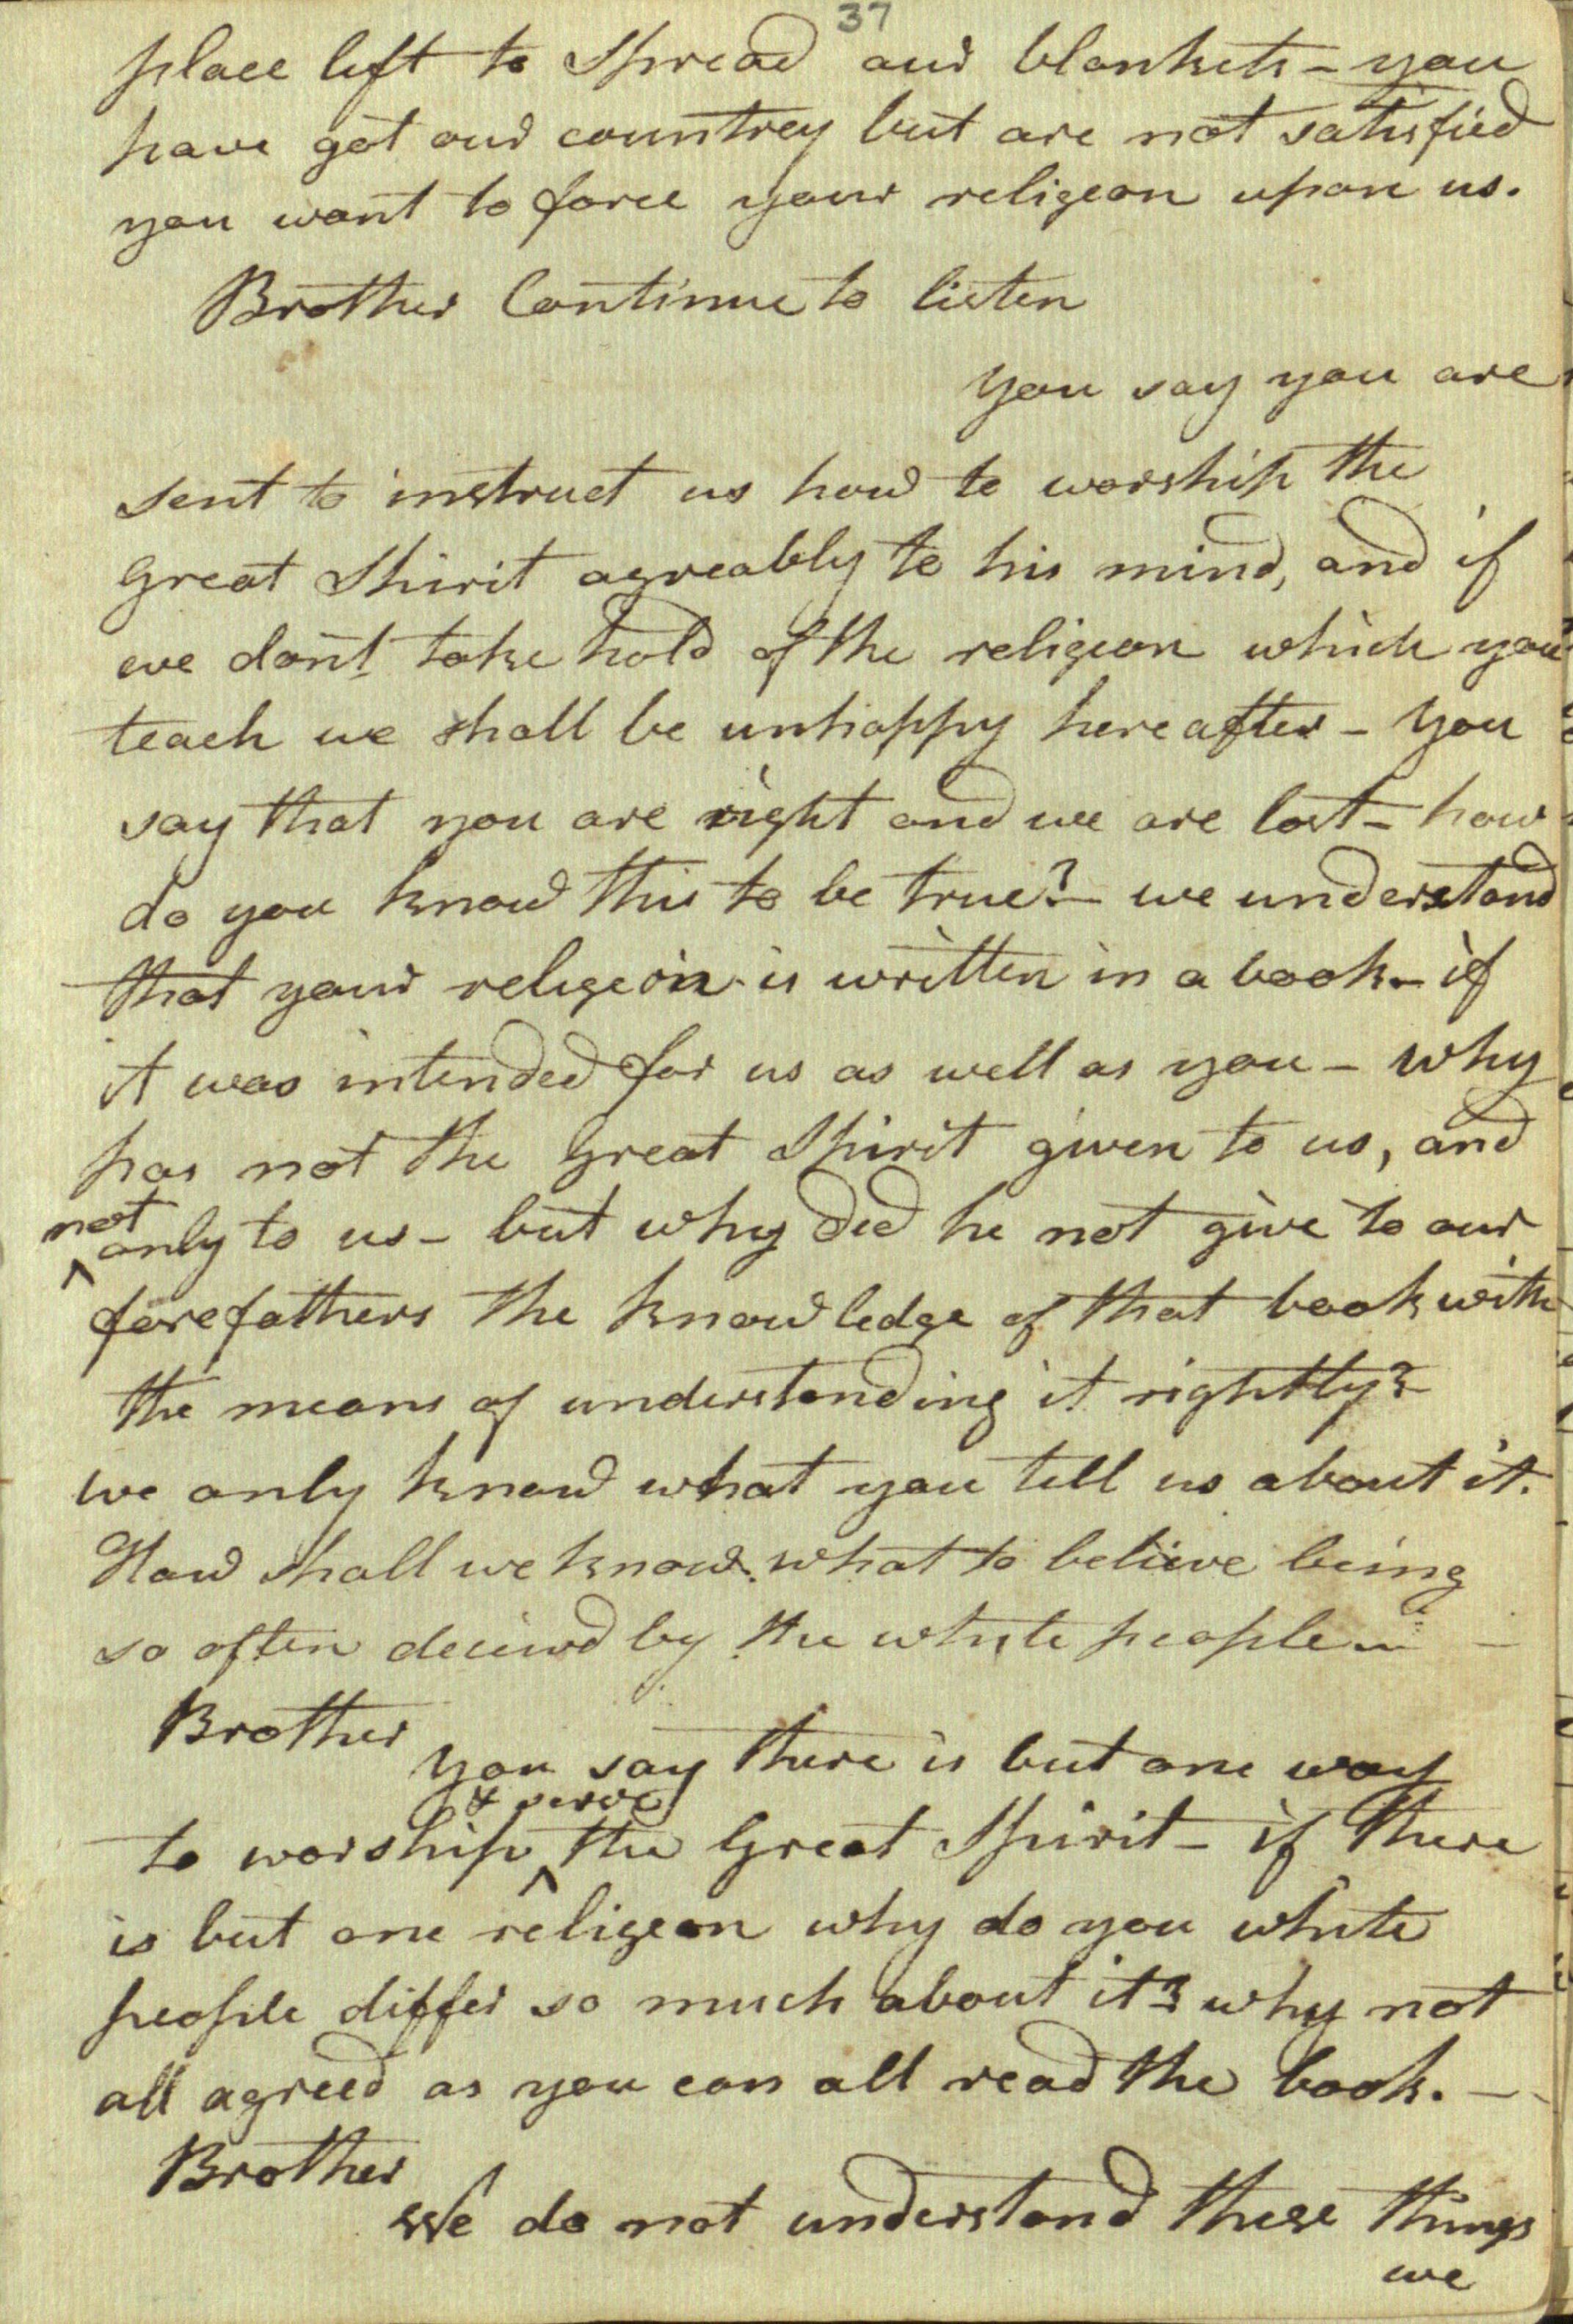 37
place left to Spread our blankets - you
have got our countrey but are not satisfied
you want to force your religeon upon us.
Brother Continue to listen
you say you are
sent to instruct us how to worship the
Great Spirit agreably to his mind, and if
we don't take hold of the religeon which you
teach we shall be unhappy hereafter - you
say that you are right and we are lost - how
do you know this to be true? - we understand
that your religeon is written in a book - if
it was intended for us as well as you - why
has not the Great Spirit given to us, and
not
only to us - but why did he not give to our
forefathers the knowledge of that book with
the means of understanding it rightly?
we only know what you tell us about it.
How shall we know what to believe being
so often deceived by the white people -
Brother
you say there is but one way
& serve
to worship ^ the Great Spirit - if there
is but one religeon why do you white
people differ so much about it? why not
all agreed as you can all read the book. -
Brother
We do not understand these things
we